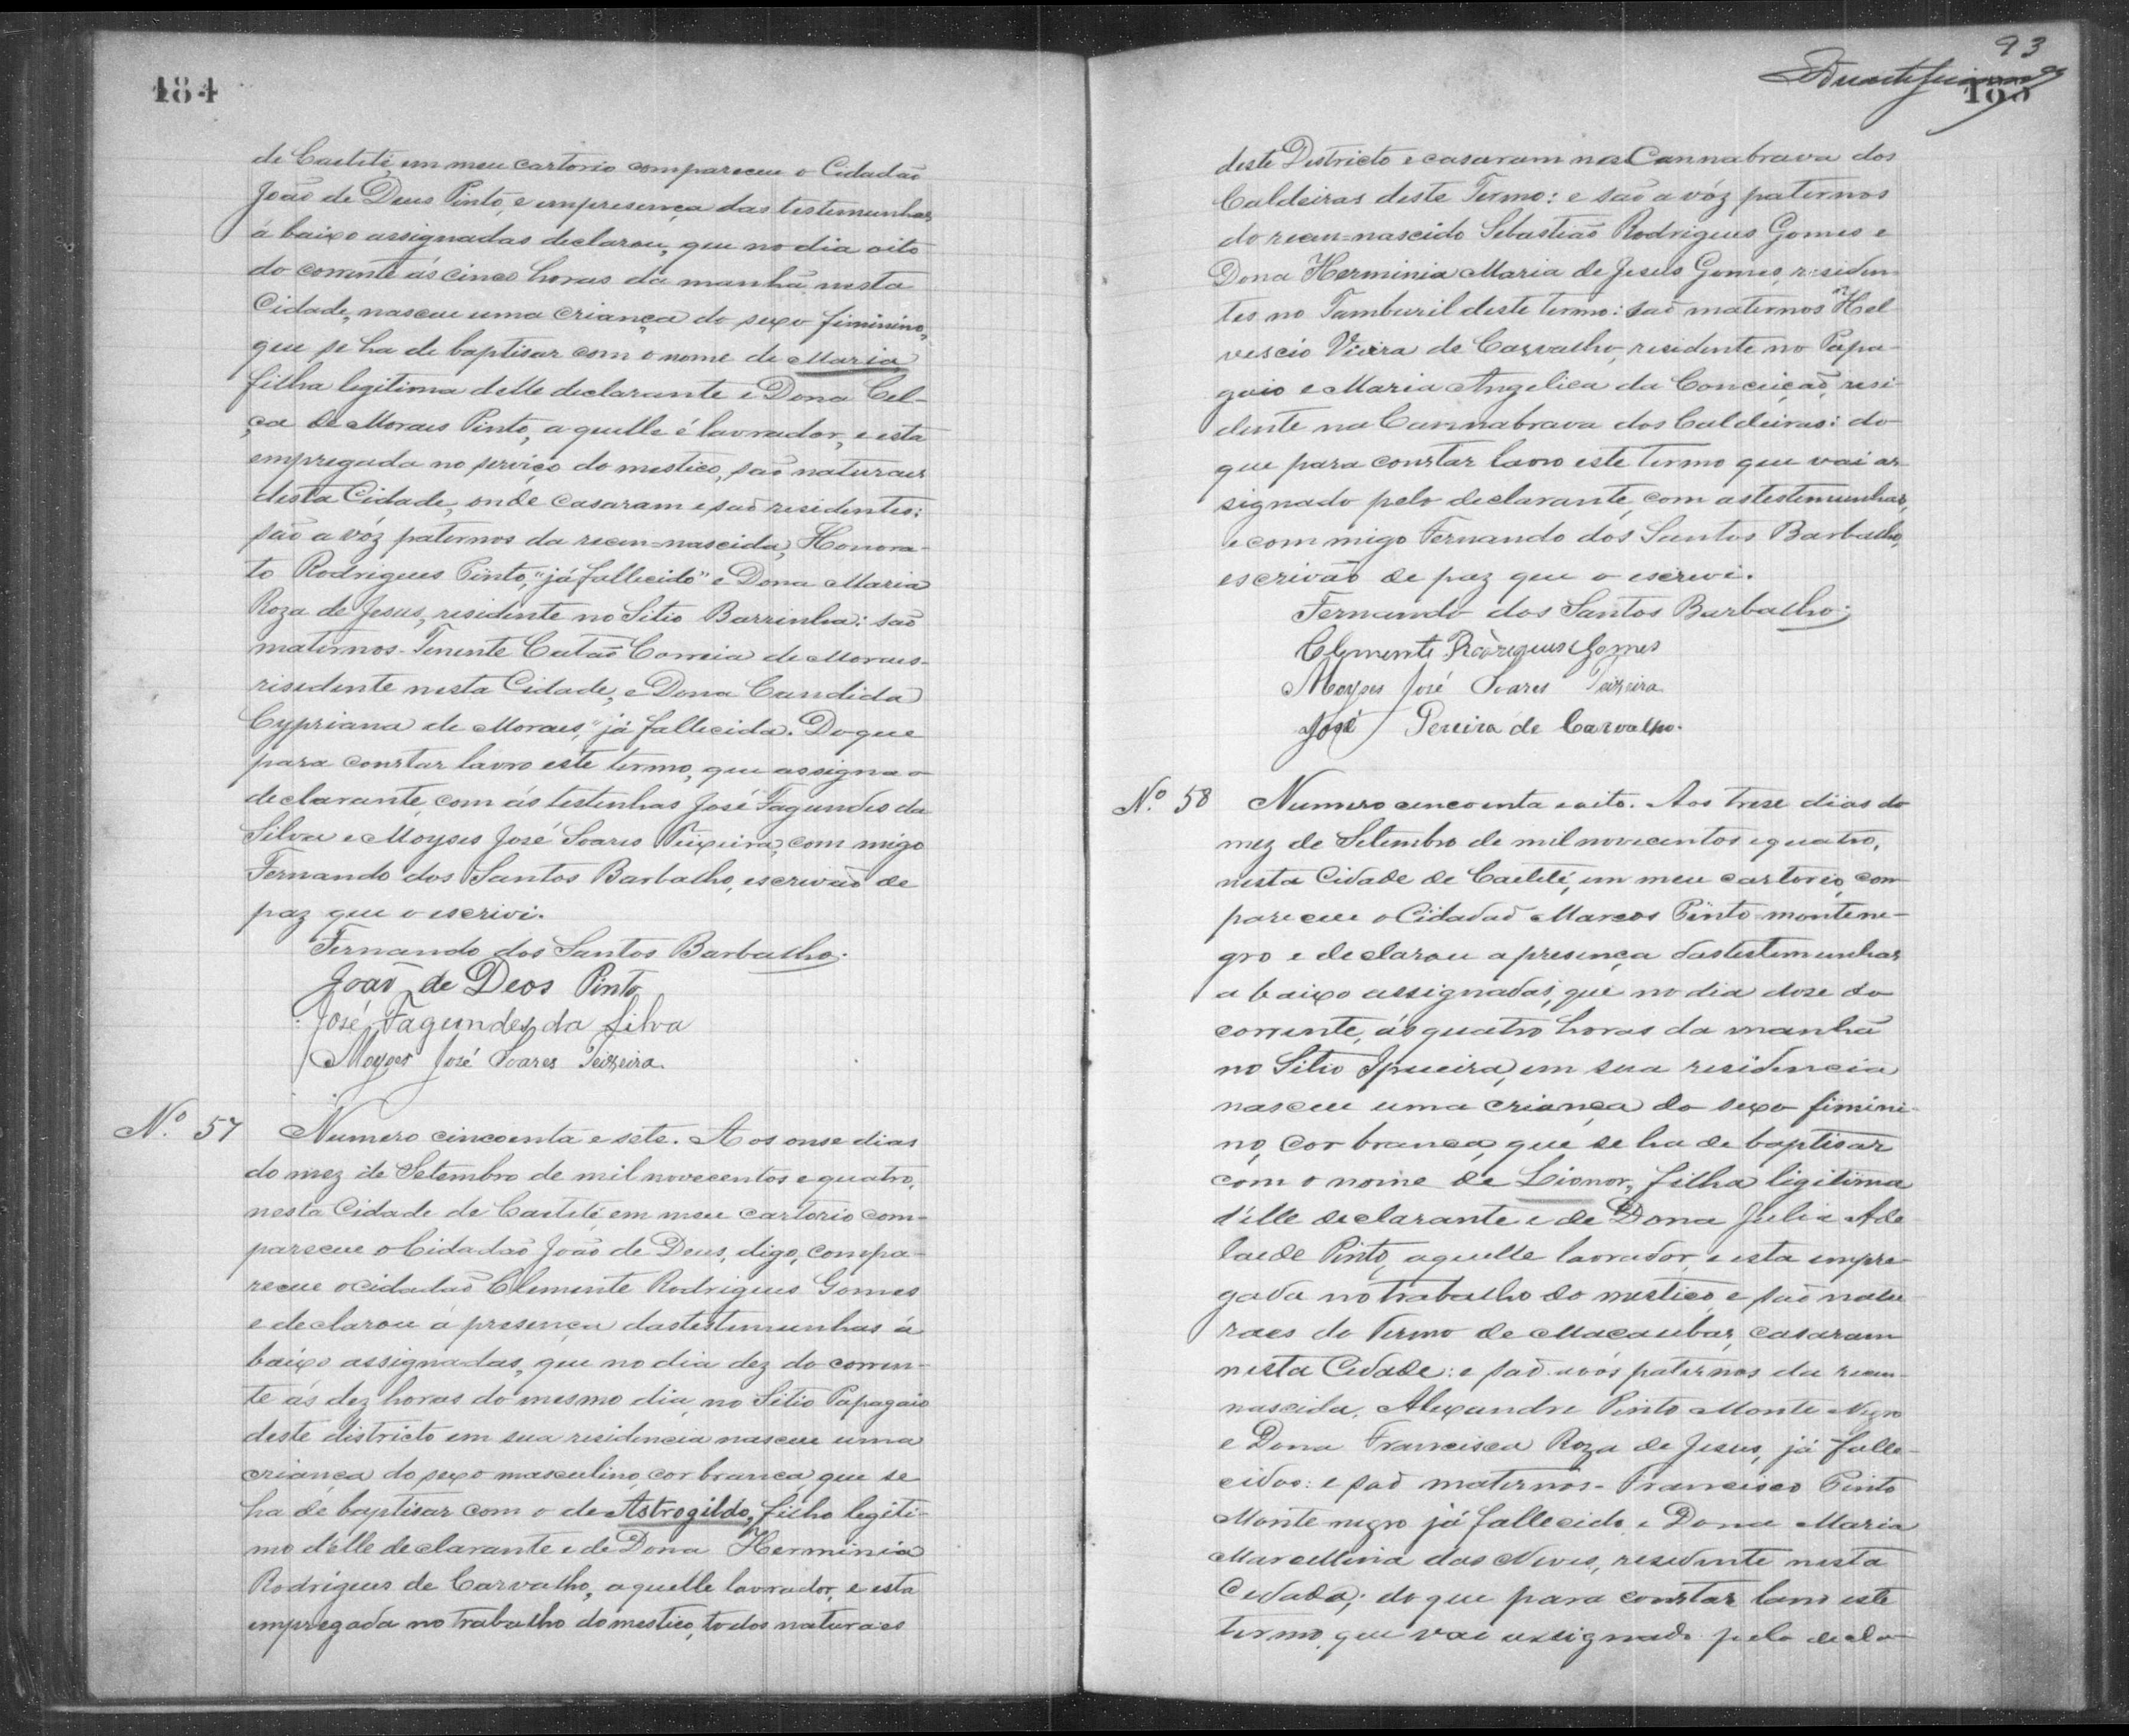 184
de Caeteté, em meu cartorio compareceu o Cidadão
João de Deus Pinto, e em presença das testemunhas,
á baixo assignadas declarou, que no dia oito
do corrente ás cinco horas da manhã nesta
Cidade, nasceu uma criança do sexo fiminino,
que se ha de baptisar com o nome de Maria,
filha legitima delle declarante e Dona Cel-
ça de Moraes Pinto, aquelle é lavrador, e esta
empregada no serviço domestico, são naturaes
desta Cidade, onde casaram e são residentes:
são avóz paternos da recem=nascida, Honora-
to Rodrigues Pinto, "já fallecido" e Dona Maria
Roza de Jesus, residente no Sitio Barrinha: são
maternos- Tenente Catão Correia de Moraes-
risidente nesta Cidade, e Dona Candida
Cypriana de Moraes, "já fallecida. Do que
para constar lavro este termo, que assigna o
declarante, com ás testinhas José Fagundes da
Silva e Moyses José Soares Teixeira, com migo
Fernando dos Santos Barbalho, escrivão de
paz que o escrivi.
Fernando dos Santos Barbalho.
João de Deos Pinto
José Fagundes da Silva
Moyses José Soares Teixeira.
Nº 57 Numero cincoenta e sete. Aos onse dias
do mez de Setembro de mil novecentos e quatro,
nesta Cidade de Caeteté, em meu cartorio com-
pareceu o Cidadão João de Deus, digo, compa-
receu o cidadão Clemente Rodrigues Gomes
e declarou á presença das testemunhas á
baixo assignadas, que no dia dez do corren-
te ás dez horas do mesmo dia, no Sitio Papagaio
deste districto em sua residencia nasceu uma
criança do sexo masculino, cor branca, que se
ha de baptisar com o de Astrogildo, filho legiti-
mo d'elle declarante e de Dona Herminia
Rodrigues de Carvalho, aquelle lavrador, e esta
empregada no trabalho domestico, todos naturaes
93
deste Districto e casaram na Cannabrava dos
Caldeiras deste Termo: e são avóz paternos
do recem=nascido Sebastião Rodrigues Gomes e
Dona Herminia Maria de Jesus Gomes, residen-
tes no Tamburil deste termo: são maternos Hel-
vescio Vieira de Carvalho, residente no Papa-
gaio e Maria Angelica da Conceição, resi-
dente na Cannabrava dos Caldeiras: do
que para constar lavro este termo que vai as-
signado pelo declarante, com as testemunhas,
e com migo Fernando dos Santos Barbalho,
escrivão de paz que o escrevi.
Fernando dos Santos Barbalho.
Clemente Rodrigues Gomes
Moyses José Soares Teixeira.
José Pereira de Carvalho.
Nº 58 Numero cincoenta e oito. Aos trese dias do
mez de Setembro de mil novecentos e quatro,
nesta Cidade de Caeteté, em meu cartorio, com-
pareceu o Cidadão Marcos Pinto montene-
gro e declarou a presença das testemunhas
a baixo assignadas, que no dia dose do
corrente, ás quatro horas da manhã
no Sitio Ipueira, em sua residencia
nasceu uma criança do sexo fimini-
no, cor branca, que se ha de baptisar
com o nome de Lionor, filha ligitima
d'elle declarante e de Dona Julia Ade-
laide Pinto, aquelle lavrador, e esta empre-
gada no trabalho domestico, e são natu-
raes do Termo de Macaubas, casaram
nesta Cidade: e são avós paternos da recem-
nascida, Alexandre Pinto Monte Negro
e Dona Francisca Roza de Jesus, já falle-
cidos: e são maternos- Francisco Pinto
Monte negro já fallecido, e Dona Maria
Marcellina das Neves, residente nesta
Cidade; do que para constar lavro este
termo, que vae assignado pelo decla-